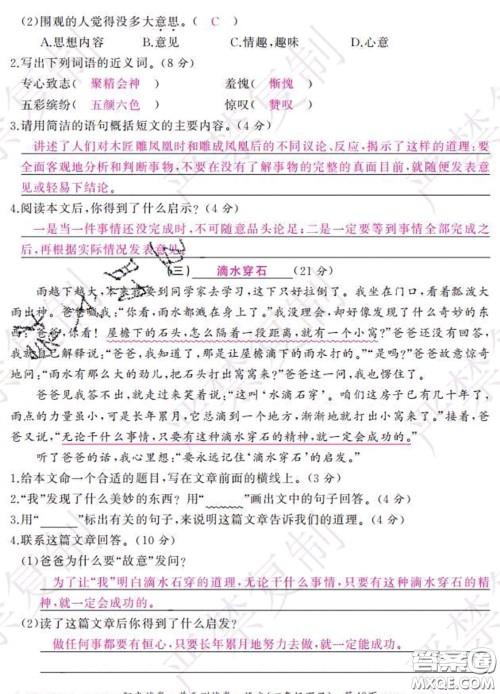 (2)围观的人觉得没多大意思。( C )
A.思想内容 B.意见 C.情趣,趣味 D.心意
2.写出下列词语的近义词。(8 分)
专心致志( 聚精会神 ) 羞愧( 惭愧 )
五彩缤纷( 五颜六色 ) 惊叹( 赞叹 )
3.请用简洁的语句概括短文的主要内容。(4 分)
讲述了人们对木匠雕凤凰时和雕成凤凰后的不同议论、反应,揭示了这样的道理:要
全面客观地分析和判断事物,不要在没有了解事物的完整的真面目前,就随便发表意
见或轻易下结论。
4.阅读本文后,你得到了什么启示?(4 分)
一是当一件事情还没完成时,不可随意品头论足;二是一定要等到事情全部完成之
后,再根据实际情况发表意见。
(三) 滴水穿石 (21 分)
雨越下越大,本来我要到同学家去学习,这下只好拉倒了。我坐在门口,看着瓢泼大
雨出神。爸爸喊我:“你看,雨水都溅在身上了。”我没理会,却好像发现了什么奇妙的东
西:“爸爸,你看!屋檐下的石头,怎么隔着一段距离,就有一个小窝?”爸爸还没有回答,
我就自己解释说:“爸爸,我知道了,那是让屋檐滴下的雨水打的。”“是吗?”爸爸故意惊奇
地问:“雨水有那么大的劲儿,把石头打出窝窝来?”爸爸这一问,我也愣住了。
爸爸见我答不出,就走过来笑着说:“这叫‘水滴石穿’。咱们这房子已有几十年了,
雨点的力量虽小,可是长年累月,它总滴到一个地方,渐渐地就打出小窝来了。”接着,爸
爸又说,“无论干什么事情,只要有这种滴水穿石的精神,就一定会成功的。”
听了爸爸的话,我心里想:“要永远记住‘滴水穿石’的启发。”
1.给本文命一个合适的题目,写在文章前面的横线上。(3 分)
2.“我”发现了什么美妙的东西?用“﹏﹏”画出文中的句子回答。(4 分)
3.用“____”标出有关的句子,来说明这篇文章告诉我们的道理。(4 分)
4.联系这篇文章回答。(10 分)
(1)爸爸为什么要“故意”发问?
为了让“我”明白滴水石穿的道理,无论干什么事情,只要有这种滴水穿石的精
神,就一定会成功的。
(2)读了这篇文章后你得到了什么启发?
做任何事都要有恒心,只要长年累月地努力去做,就一定能成功。